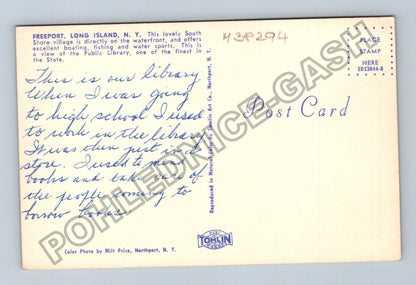 FREEPORT, LONG ISLAND, N. Y. This lovely South
Shore village is directly on the waterfront, and offers
excellent boating, fishing and water sports. This is
a view of the Public Library, one of the finest in
the State.
H3P294
PLACE
STAMP
HERE
SD13844-B
This is our library.
When I was going
to high school I used
to work in the library
It was then just in a
store. I used to mend
books and take care of
the people coming to
borrow books.
Post Card
Reproduced in Natural Color by Tomlin Art Co., Northport, N. Y.
TOMLIN
Color Photo by Milt Price, Northport, N. Y.
POHLEDNICE-GASH